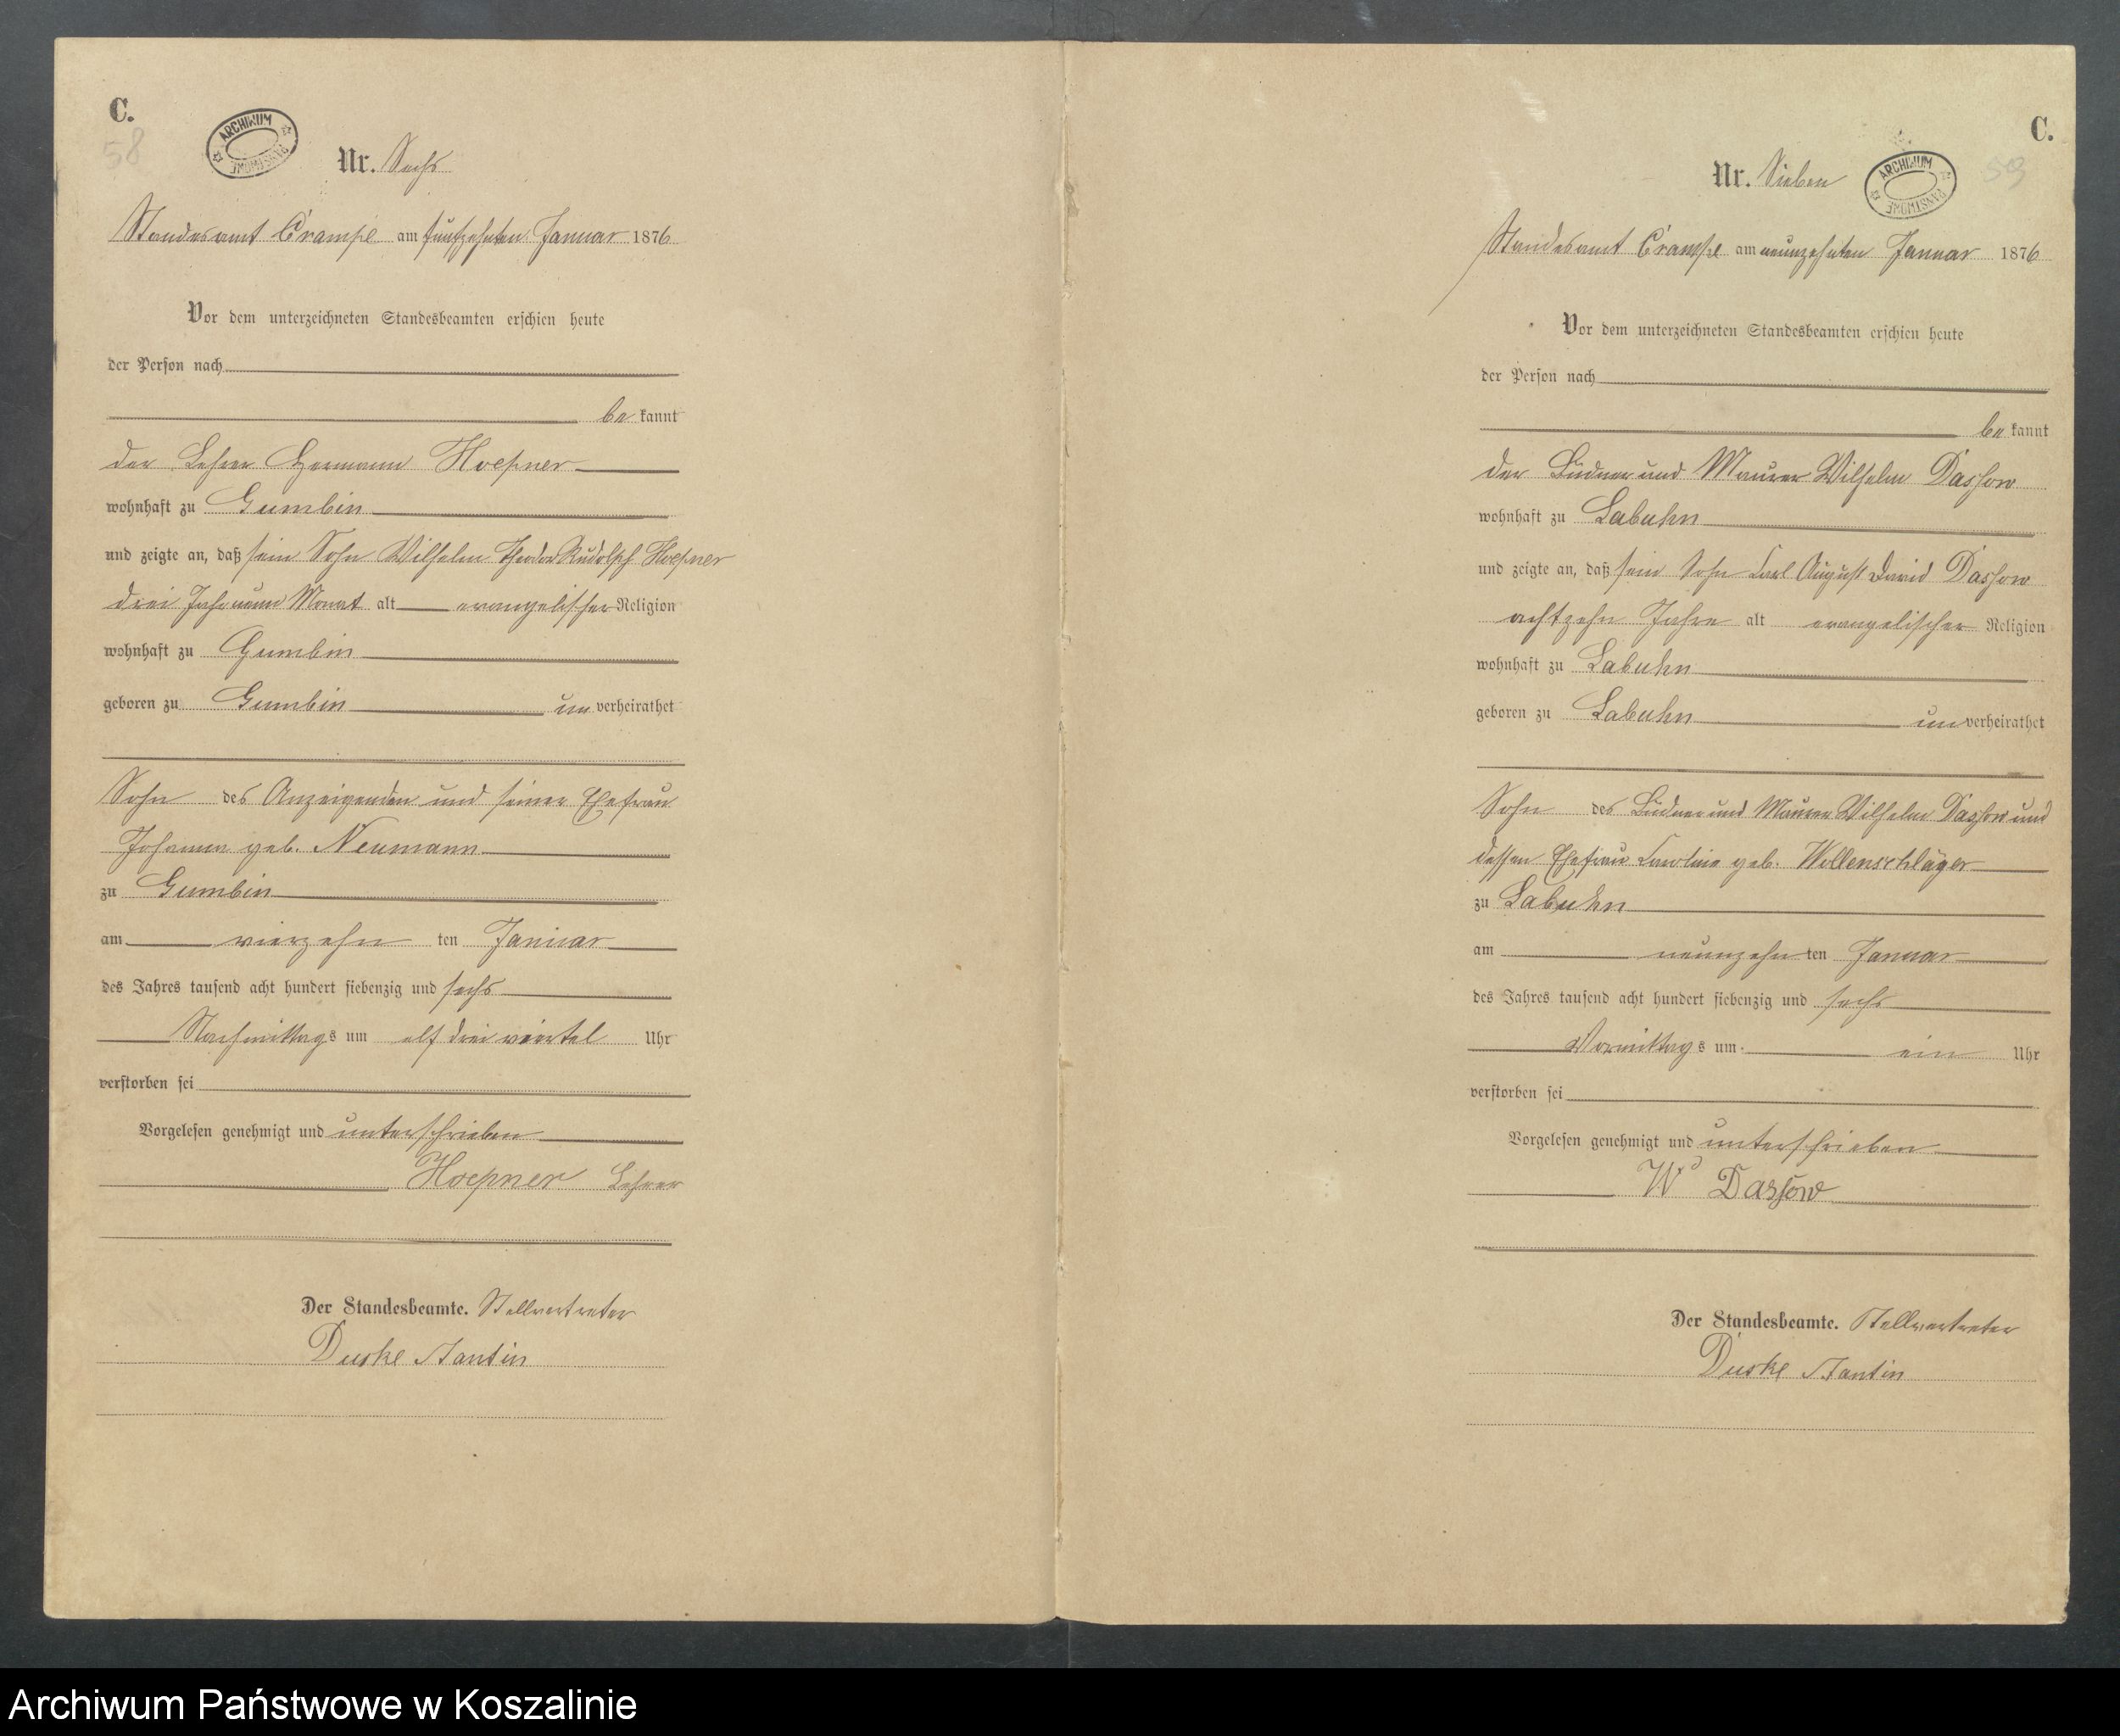 C.
58
ARCHIWUM PAŃSTWOWE
Nr. Sechs
Standesamt Crampe am fünfzehnten Januar 1876
Vor dem unterzeichneten Standesbeamten erschien heute
der Person nach
be kannt
der Lehrer Hermann Hoepner
wohnhaft zu Gumbin
und zeigte an, daß sein Sohn Wilhelm Theodor Rudolph Hoepner
drei Jahr neun Monat alt evangelischer Religion
wohnhaft zu Gumbin
geboren zu Gumbin un verheirathet
Sohn des Anzeigenden und seiner Ehefrau
Johanna geb. Neumann
zu Gumbin
am vierzehn ten Januar
des Jahres tausend acht hundert siebenzig und sechs
Nachmittags um elf drei viertel Uhr
verstorben sei
Vorgelesen genehmigt und unterschrieben
Hoepner Lehrer
Der Standesbeamte. Stellvertreter
Duske Stantin
C.
59
Nr. Sieben
ARCHIWUM PAŃSTWOWE
Standesamt Crampe am neunzehnten Januar 1876
Vor dem unterzeichneten Standesbeamten erschien heute
der Person nach
be kannt
der Büdner und Maurer Wilhelm Dassow
wohnhaft zu Labuhn
und zeigte an, daß sein Sohn Carl August David Dassow
achtzehn Jahre alt evangelischer Religion
wohnhaft zu Labuhn
geboren zu Labuhn un verheirathet
Sohn des Büdner und Maurer Wilhelm Dassow und
dessen Ehefrau Caroline geb. Wollenschläger
zu Labuhn
am neunzehn ten Januar
des Jahres tausend acht hundert siebenzig und sechs
Vormittags um ein Uhr
verstorben sei
Vorgelesen genehmigt und unterschrieben
W Dassow
Der Standesbeamte. Stellvertreter
Duske Stantin
Archiwum Państwowe w Koszalinie